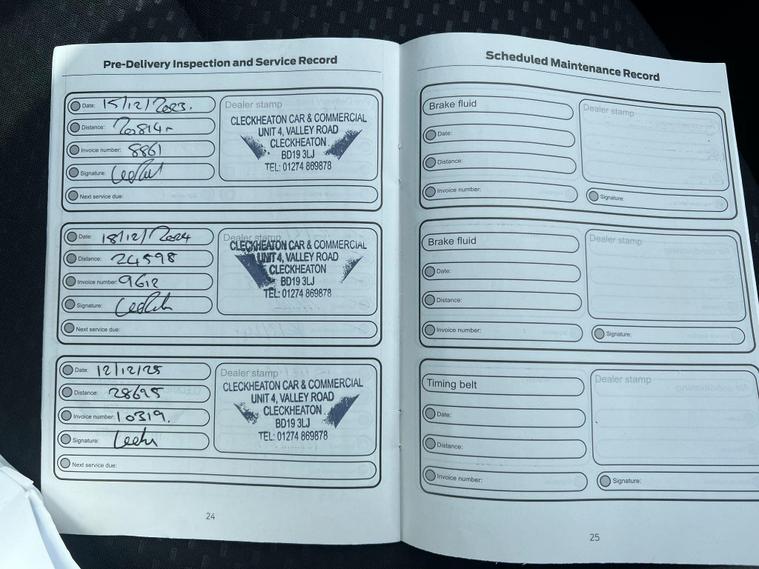 Pre-Delivery Inspection and Service Record
Date: 15/12/2023.
Distance: 20814
Invoice number: 8861
Signature:
Next service due:
Dealer stamp
CLECKHEATON CAR & COMMERCIAL
UNIT 4, VALLEY ROAD
CLECKHEATON
BD19 3LJ
TEL: 01274 869878
Date: 18/12/2024
Distance: 24598
Invoice number: 9612
Signature:
Next service due:
Dealer stamp
CLECKHEATON CAR & COMMERCIAL
UNIT 4, VALLEY ROAD
CLECKHEATON
BD19 3LJ
TEL: 01274 869878
Date: 12/12/25
Distance: 28695
Invoice number: 10319.
Signature:
Next service due:
Dealer stamp
CLECKHEATON CAR & COMMERCIAL
UNIT 4, VALLEY ROAD
CLECKHEATON
BD19 3LJ
TEL: 01274 869878
24
Scheduled Maintenance Record
Brake fluid
Date:
Distance:
Invoice number:
Dealer stamp
Signature:
Brake fluid
Date:
Distance:
Invoice number:
Dealer stamp
Signature:
Timing belt
Date:
Distance:
Invoice number:
Dealer stamp
Signature:
25